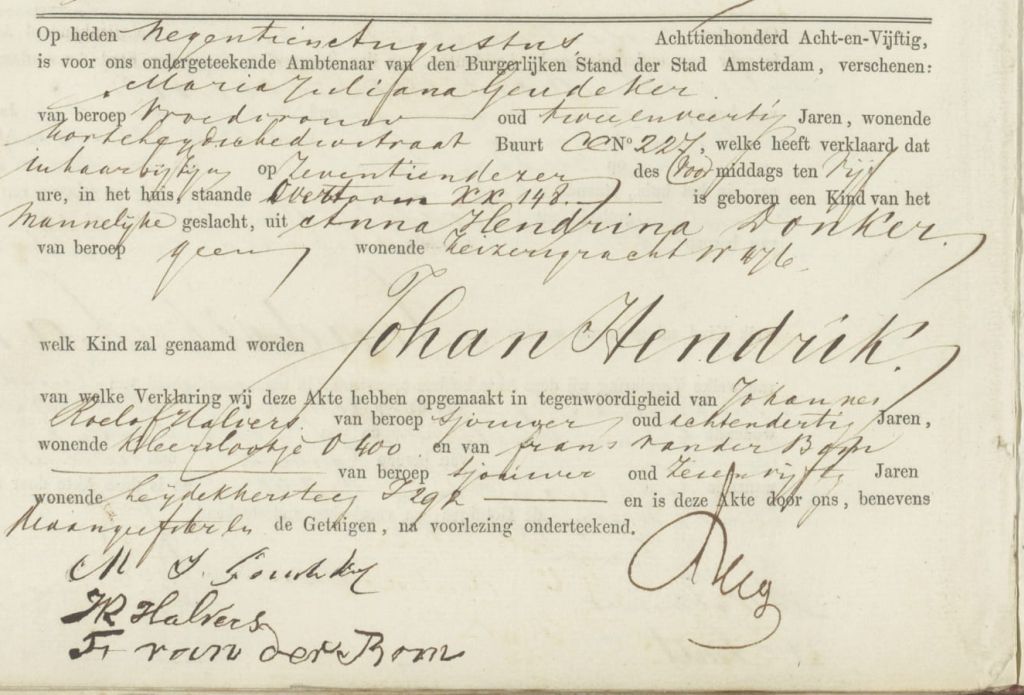 Op heden Negentien Augustus Achttienhonderd Acht-en-Vijftig,
is voor ons ondergeteekende Ambtenaar van den Burgerlijken Stand der Stad Amsterdam, verschenen:
Maria Juliana Goudeker
van beroep Vroedvrouw oud tweeenveertig Jaren, wonende
Buurt CC No 227, welke heeft verklaard dat
in haar bijzijn op Zeventien dezer des Voormiddags ten Vijf
ure, in het huis, staande Overtoom XX 148. is geboren een Kind van het
Mannelijke geslacht, uit Anna Hendrina Donker.
van beroep geen wonende Keizersgracht 476.
welk Kind zal genaamd worden Johan Hendrik.
van welke Verklaring wij deze Akte hebben opgemaakt in tegenwoordigheid van Johannes
Roelof Halvers van beroep sjouwer oud achtendertig Jaren,
wonende O 400 en van Frans van der Bom
van beroep sjouwer oud Jaren
wonende Leydekkersteeg 292 en is deze Akte door ons, benevens
de Getuigen, na voorlezing onderteekend.
M J Goudeker
JR Halvers
F van der Bom